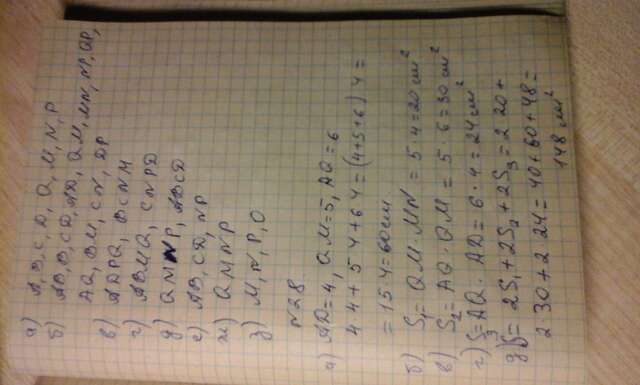 а) A, B, C, D, Q, M, N, P
б) AB, B, CD, AD, QM, MN, NP, QP,
AQ, BM, CN, DP
в) ADPQ, BCNM
г) ABMQ, CNPD
д) QMNP, ABCD
е) AB, CD, NP
ж) QMNP
з) M, N, P, O
№28.
а) AD=4, QM=5, AQ=6
4·4+5·4+6·4=(4+5+6)·4=
=15·4=60см
б) S₁=QM·MN=5·4=20см²
в) S₂=AQ·QM=5·6=30см²
г) S₃=AQ·AD=6·4=24см²
д) S=2S₁+2S₂+2S₃=2·20+
2·30+2·24=40+60+48=
148см²